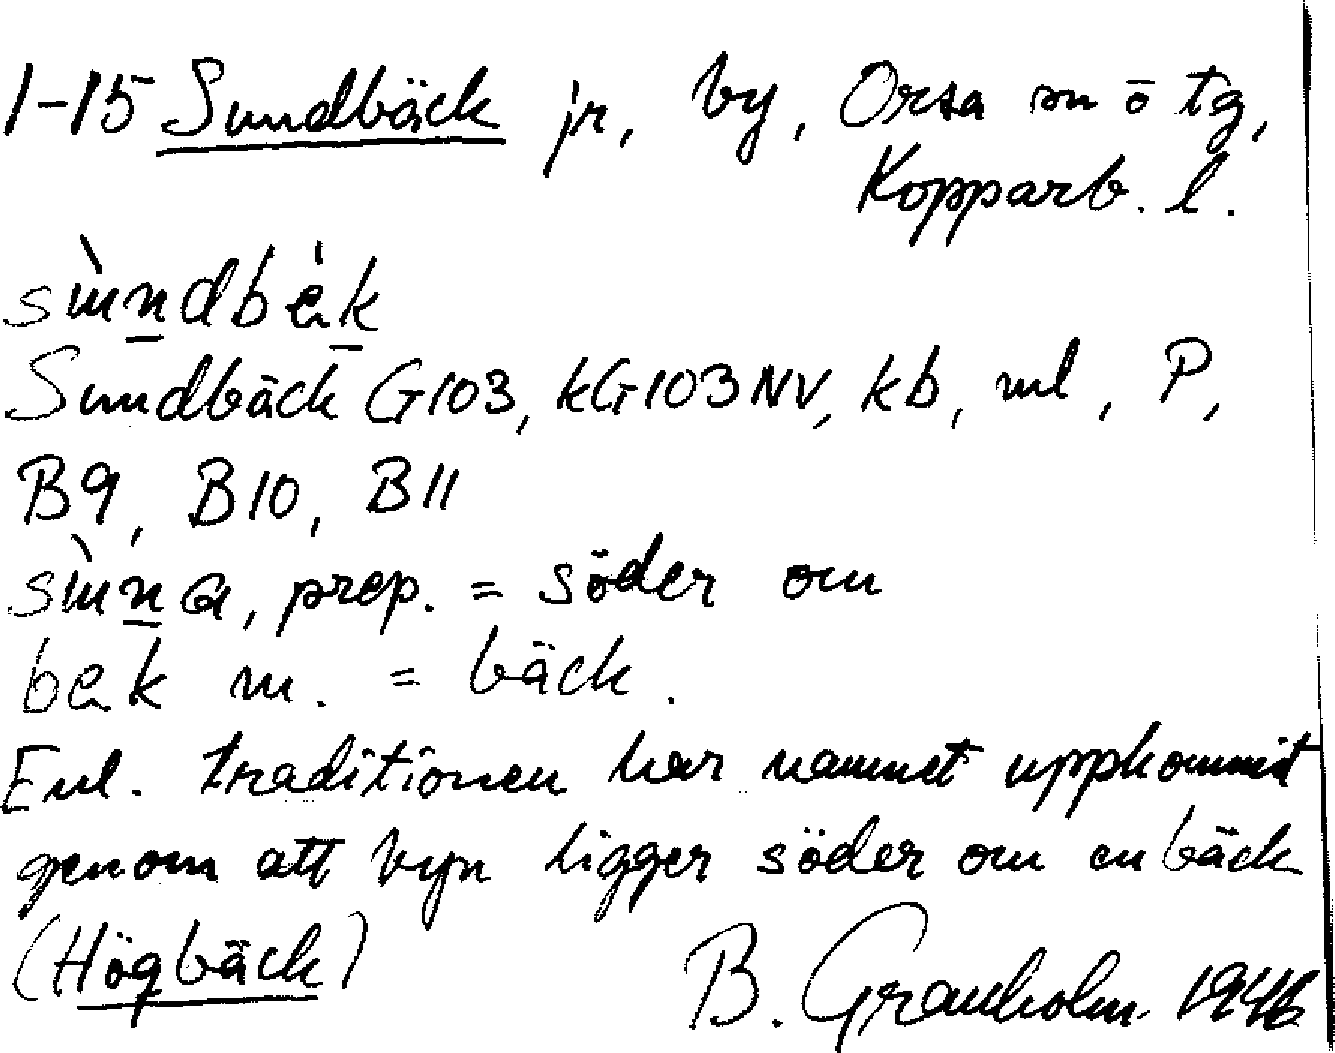 1-15 Sundbäck jr, by, Orsa sn o tg,
Kopparb. l.
sùndbèk
Sundbäck G103, kG103NV, kb, ml, P,
B9, B10, B11
sùna, prep. = söder om
bek m. = bäck.
Enl. traditionen har namnet uppkommit
genom att byn ligger söder om en bäck
(Högbäck)
B. Granholm 1946